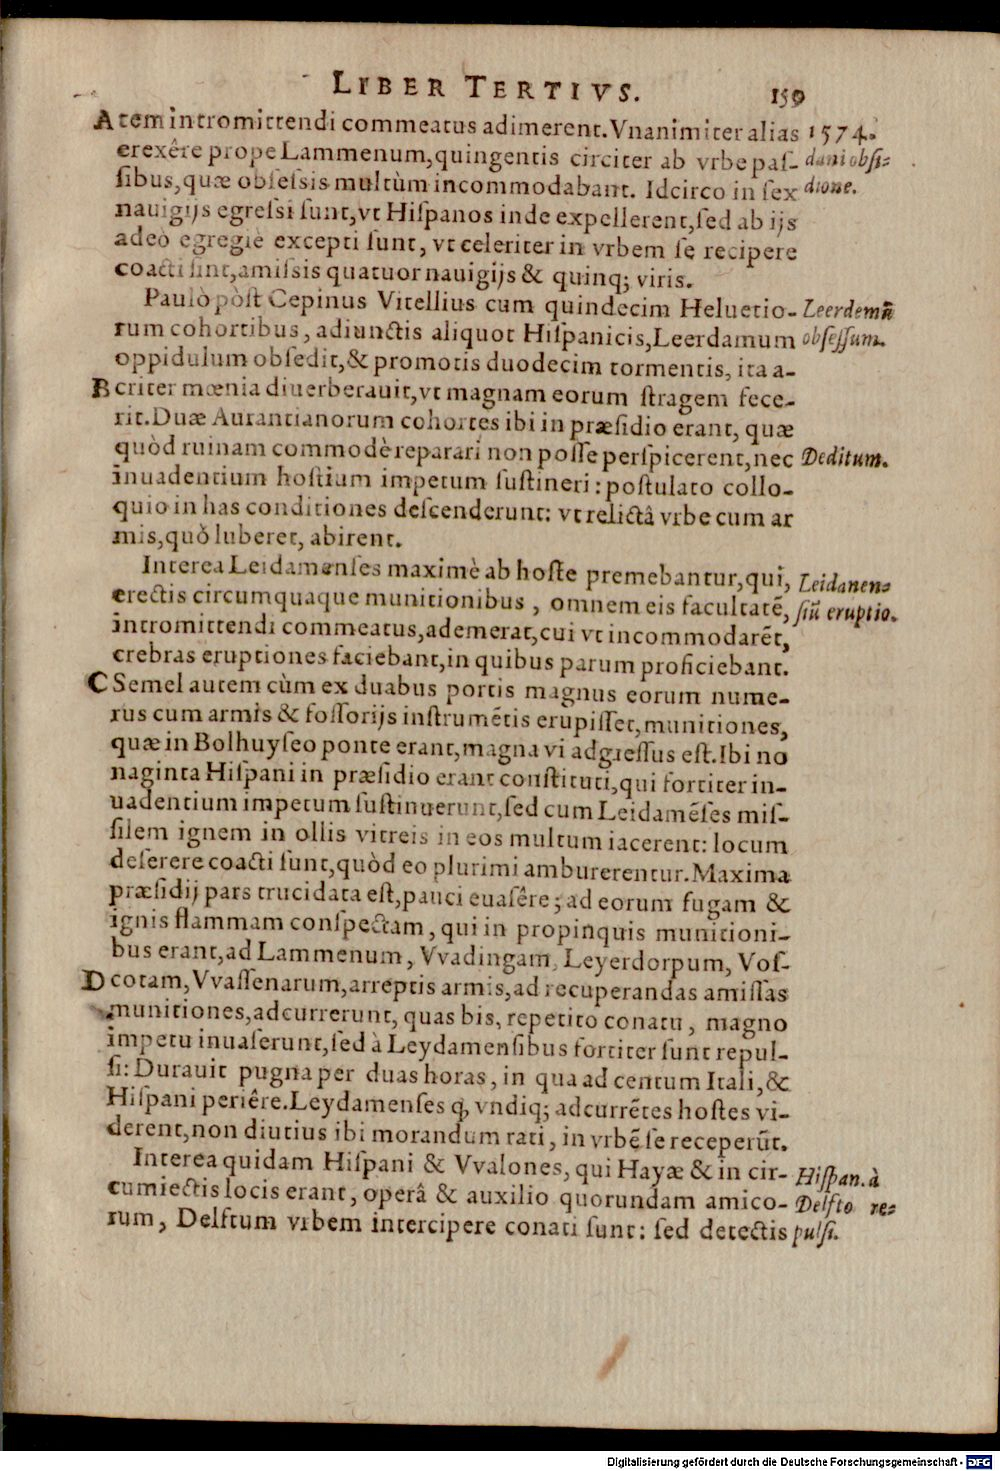 LIBER TERTIVS. 159
A tem intromittendi commeatus adimerent. Vnanimiter alias 1574.
erexêre prope Lammenum, quingentis circiter ab vrbe paſ- dani obſi-
ſibus, quæ obſeſsis multùm incommodabant. Idcirco in ſex dione.
nauigijs egreſsi ſunt, vt Hiſpanos inde expellerent, ſed ab ijs
adeò egregiè excepti ſunt, vt celeriter in vrbem ſe recipere
coacti ſint, amiſsis quatuor nauigijs & quinq; viris.
Paulò pòſt Cepinus Vitellius cum quindecim Heluetio- Leerdemũ
rum cohortibus, adiunctis aliquot Hiſpanicis, Leerdamum obſeſſum.
oppidulum obſedit, & promotis duodecim tormentis, ita a-
B criter mœnia diuerberauit, vt magnam eorum ſtragem fece-
rit. Duæ Aurantianorum cohortes ibi in præſidio erant, quæ
quòd ruinam commodè reparari non poſſe perſpicerent, nec Deditum.
inuadentium hoſtium impetum ſuſtineri: poſtulato collo-
quio in has conditiones deſcenderunt: vt relictâ vrbe cum ar
mis, quò luberet, abirent.
Interea Leidamenſes maximè ab hoſte premebantur, qui, Leidanen-
erectis circumquaque munitionibus, omnem eis facultatẽ, ſiũ eruptio.
intromittendi commeatus, ademerat, cui vt incommodarẽt,
crebras eruptiones faciebant, in quibus parum proficiebant.
C Semel autem cùm ex duabus portis magnus eorum nume-
rus cum armis & foſſorijs inſtrumẽtis erupiſſet, munitiones,
quæ in Bolhuyſeo ponte erant, magna vi adgreſſus eſt. Ibi no
naginta Hiſpani in præſidio erant conſtituti, qui fortiter in-
uadentium impetum ſuſtinuerunt, ſed cum Leidamẽſes miſ-
ſilem ignem in ollis vitreis in eos multum iacerent: locum
deſerere coacti ſunt, quòd eo plurimi amburerentur. Maxima
præſidij pars trucidata eſt, pauci euaſêre; ad eorum fugam &
ignis flammam conſpectam, qui in propinquis munitioni-
bus erant, ad Lammenum, Vvadingam, Leyerdorpum, Voſ-
D cotam, Vvaſſenarum, arreptis armis, ad recuperandas amiſſas
munitiones, adcurrerunt, quas bis, repetito conatu, magno
impetu inuaſerunt, ſed à Leydamenſibus fortiter ſunt repul-
ſi: Durauit pugna per duas horas, in qua ad centum Itali, &
Hiſpani periêre. Leydamenſes q, vndiq; adcurrẽtes hoſtes vi-
derent, non diutius ibi morandum rati, in vrbẽ ſe receperũt.
Interea quidam Hiſpani & Vvalones, qui Hayæ & in cir- Hiſpan. à
cumiectis locis erant, operâ & auxilio quorundam amico- Delfto re-
rum, Delftum vrbem intercipere conati ſunt: ſed detectis pulſi.
Digitalisierung gefördert durch die Deutsche Forschungsgemeinschaft - DFG